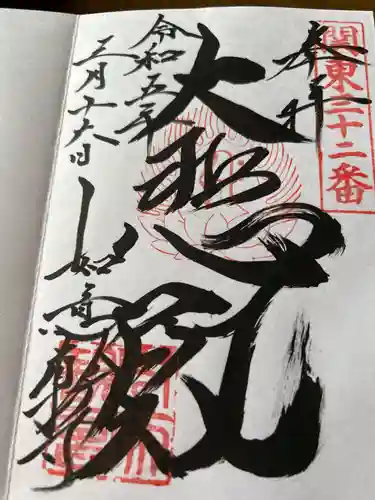 関東三十二番
奉拝
大悲殿
令和五年
三月十六日
如意輪寺